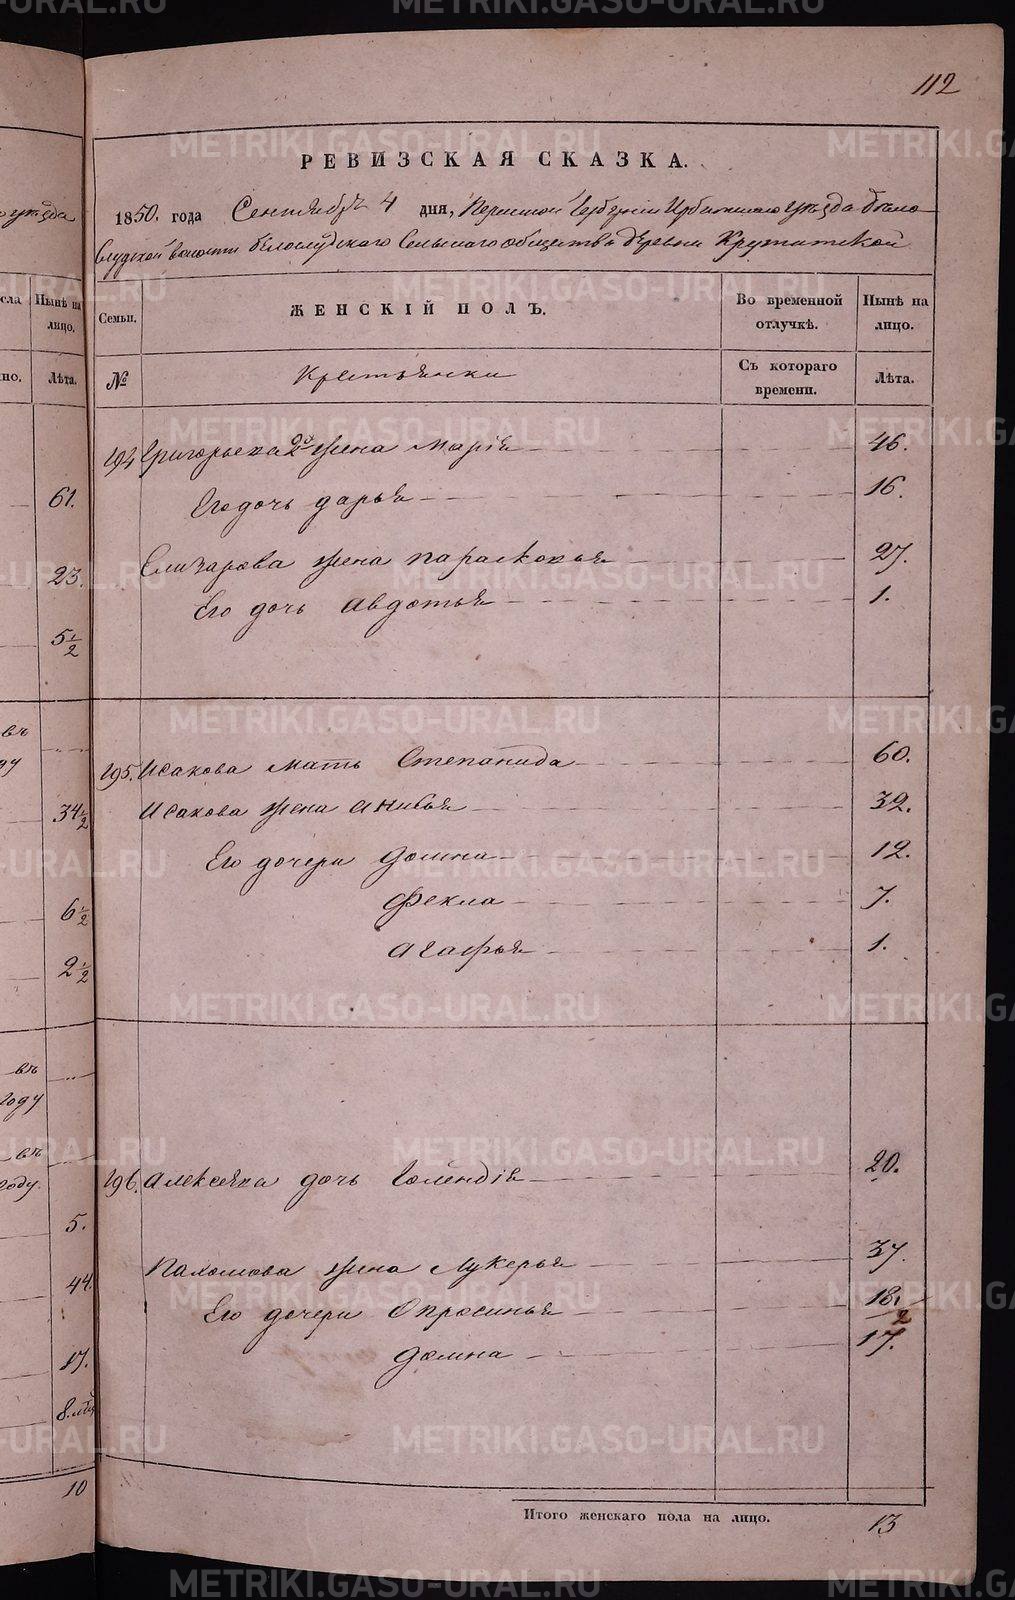 112
РЕВИЗСКАЯ СКАЗКА.
1850. года Сентября 4 дня, Пермской Губерніи Ирбитскаго уѣзда Бѣло-
слудской волости Бѣлослудского Сельскаго общества деревни Крутитской
Семьи.
ЖЕНСКІЙ ПОЛЪ.
Во временной отлучкѣ.
Нынѣ на лицо.
№
Крестьянки
Съ котораго времени.
Лѣта.
194 Григорьева 2я жена Марія 46.
Его дочь Дарья 16.
Елизарова жена Парасковья 27.
Его дочь Авдотья 1.
195. Исакова мать Степанида 60.
Исакова жена Анисья 32.
Его дочери Домна 12.
Фекла 7.
Агафья 1.
196. Алексѣева дочь 20.
Пахомова жена Лукерья 37.
Его дочери Опросинья 18.
2
Домна 17.
Итого женскаго пола на лицо. 13
уѣзда
сла
Нынѣ на лицо.
но.
Лѣта.
61.
23.
5 1/2
въ
ду
34 1/2
6 1/2
2 1/2
въ
году
въ
году.
5.
44.
17.
8.
10
METRIKI.GASO-URAL.RU